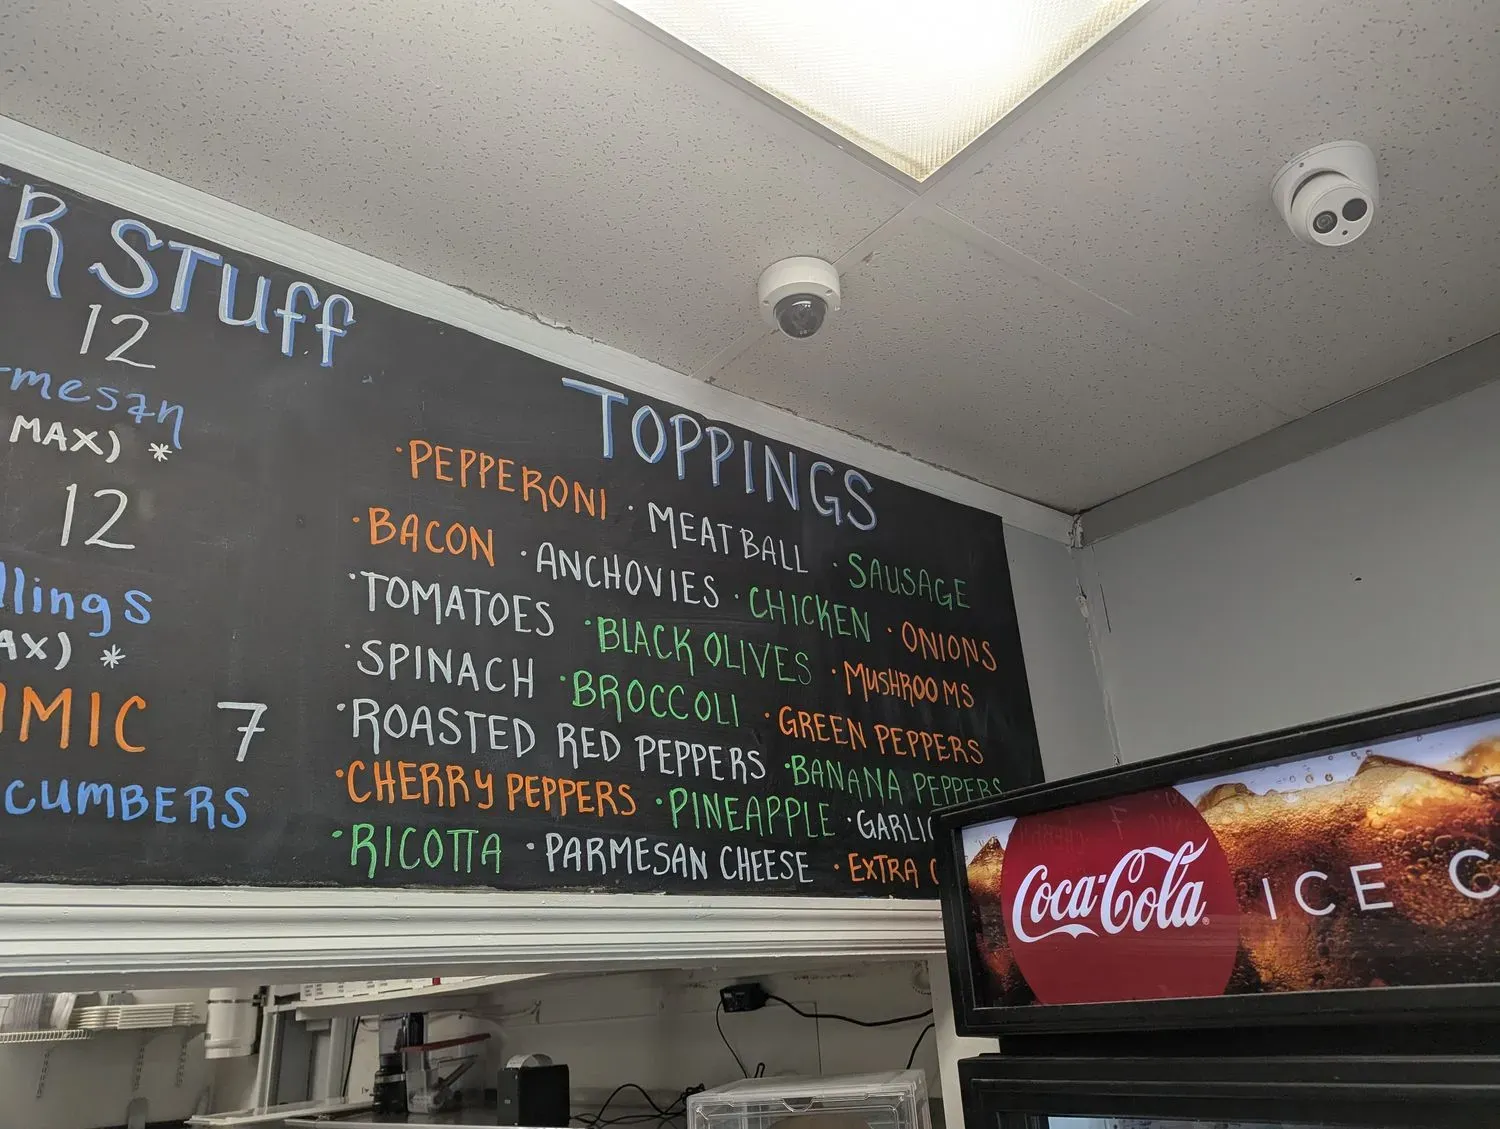 R STUFF
12
mesan
MAX) *
12
llings
AX) *
MIC 7
CUMBERS
TOPPINGS
·PEPPERONI ·MEATBALL ·SAUSAGE
·BACON ·ANCHOVIES ·CHICKEN ·ONIONS
·TOMATOES ·BLACK OLIVES ·MUSHROOMS
·SPINACH ·BROCCOLI ·GREEN PEPPERS
·ROASTED RED PEPPERS ·BANANA PEPPERS
·CHERRY PEPPERS ·PINEAPPLE ·GARLIC
·RICOTTA ·PARMESAN CHEESE ·EXTRA
Coca-Cola ICE C